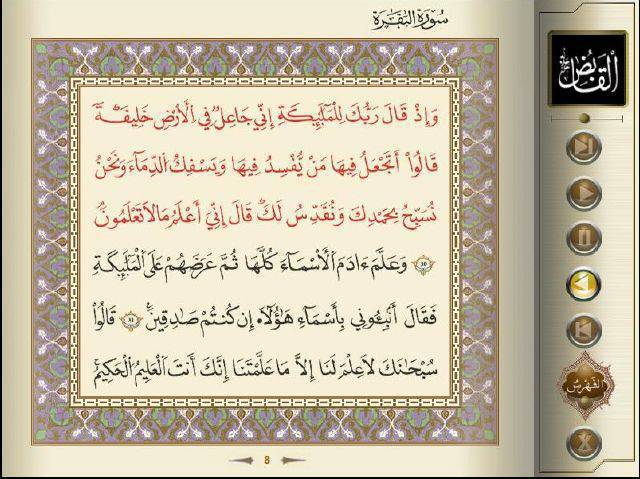 سُورَةُ البَقَرَة
وَإِذْ قَالَ رَبُّكَ لِلْمَلَٰٓئِكَةِ إِنِّي جَاعِلٌ فِي ٱلْأَرْضِ خَلِيفَةً ۖ
قَالُوٓا۟ أَتَجْعَلُ فِيهَا مَن يُفْسِدُ فِيهَا وَيَسْفِكُ ٱلدِّمَآءَ وَنَحْنُ
نُسَبِّحُ بِحَمْدِكَ وَنُقَدِّسُ لَكَ ۖ قَالَ إِنِّيٓ أَعْلَمُ مَا لَا تَعْلَمُونَ
30 وَعَلَّمَ ءَادَمَ ٱلْأَسْمَآءَ كُلَّهَا ثُمَّ عَرَضَهُمْ عَلَى ٱلْمَلَٰٓئِكَةِ
فَقَالَ أَنۢبِـُٔونِي بِأَسْمَآءِ هَٰٓؤُلَآءِ إِن كُنتُمْ صَٰدِقِينَ 31 قَالُوا۟
سُبْحَٰنَكَ لَا عِلْمَ لَنَآ إِلَّا مَا عَلَّمْتَنَآ إِنَّكَ أَنتَ ٱلْعَلِيمُ ٱلْحَكِيمُ
8
الْقَابِضُ
الفهرس
X